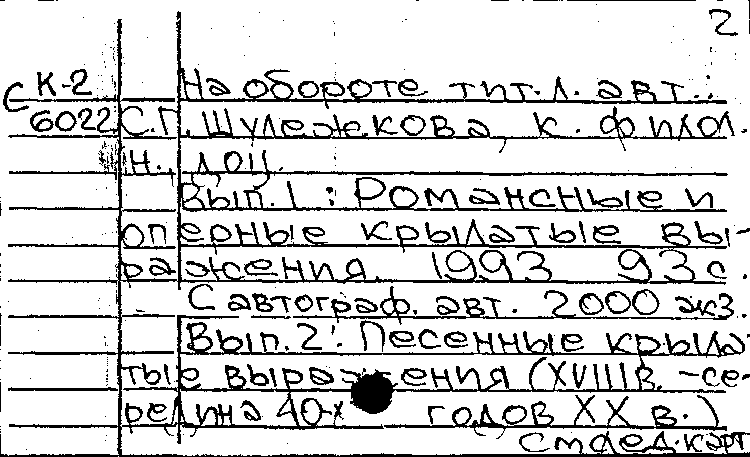 2
С К-2 На обороте тит.л. авт.:
6022 С.П. Шулежкова, к. филол.
н., доц.
Вып.1: Романсные и
оперные крылатые вы-
ражения. 1993 93 с.
С автограф. авт. 2000 экз.
Вып.2: Песенные крыла-
тые выражения (XVIIIв. -се-
редина 40-х годов XX в.)
См. след. карт